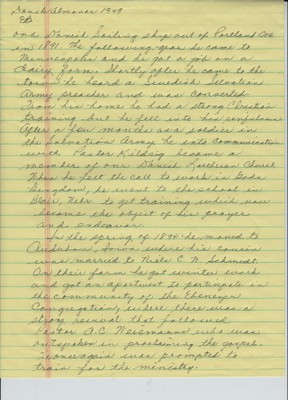 Dansk Almanac 1949
on a Danish Sailing ship out of Portland Ore
in 1891. The following year he came to
Minneapolis and he got a job on a
dairy farm. Shortly after he came to the
town he heard a Swedish Salvation
Army preacher and was converted
From his home he had a strong Christian
training but he fell into his sinfulness
After a few months as a soldier in
the Salvation Army he into Communication
with Pastor Kildsig became a
member of our Danish Lutheran Church
When he felt the call to work in Gods
Kingdom, he went to the school in
Blair, Nebr to get training which now
became the object of his prayer
and endeavor.
In the spring of 1894 he moved to
Audubon, Iowa where his cousin
was married to Niels C. N. Schmidt.
On their farm he got winter work
and got an apartment to partispate in
the community of the Ebenezer
Congregation, where there was a
strong revival that followed
Pastor A.C. Weismann who was
outspoken in proclaiming the gospel.
once again was prompted to
train for the ministry.